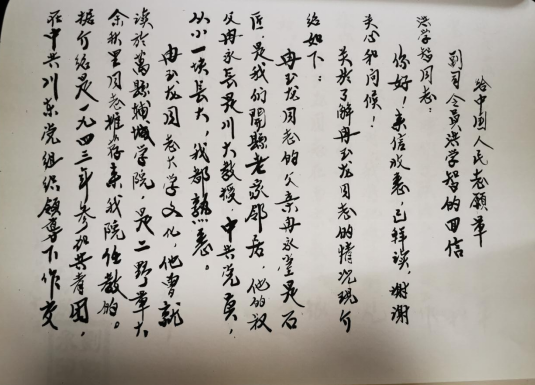 给中国人民志愿军
副司令员洪学智的回信
洪学智同志：
你好！来信收悉，已拜读，谢谢
关心和问候！
关于了解冉玉龙同志的情况现介
绍如下：
冉玉龙同志的父亲冉永堂是石
匠，是我们开县老家邻居，他的叔
父冉永长是川大教授，中共党员，
从小一块长大，我都熟悉。
冉玉龙同志大学文化，他曾就
读于万县辅成学院，是二野军大
余秋里同志推荐来我院任教的。
据介绍是一九四三年参加共青团，
在中共川东党组织领导下作党